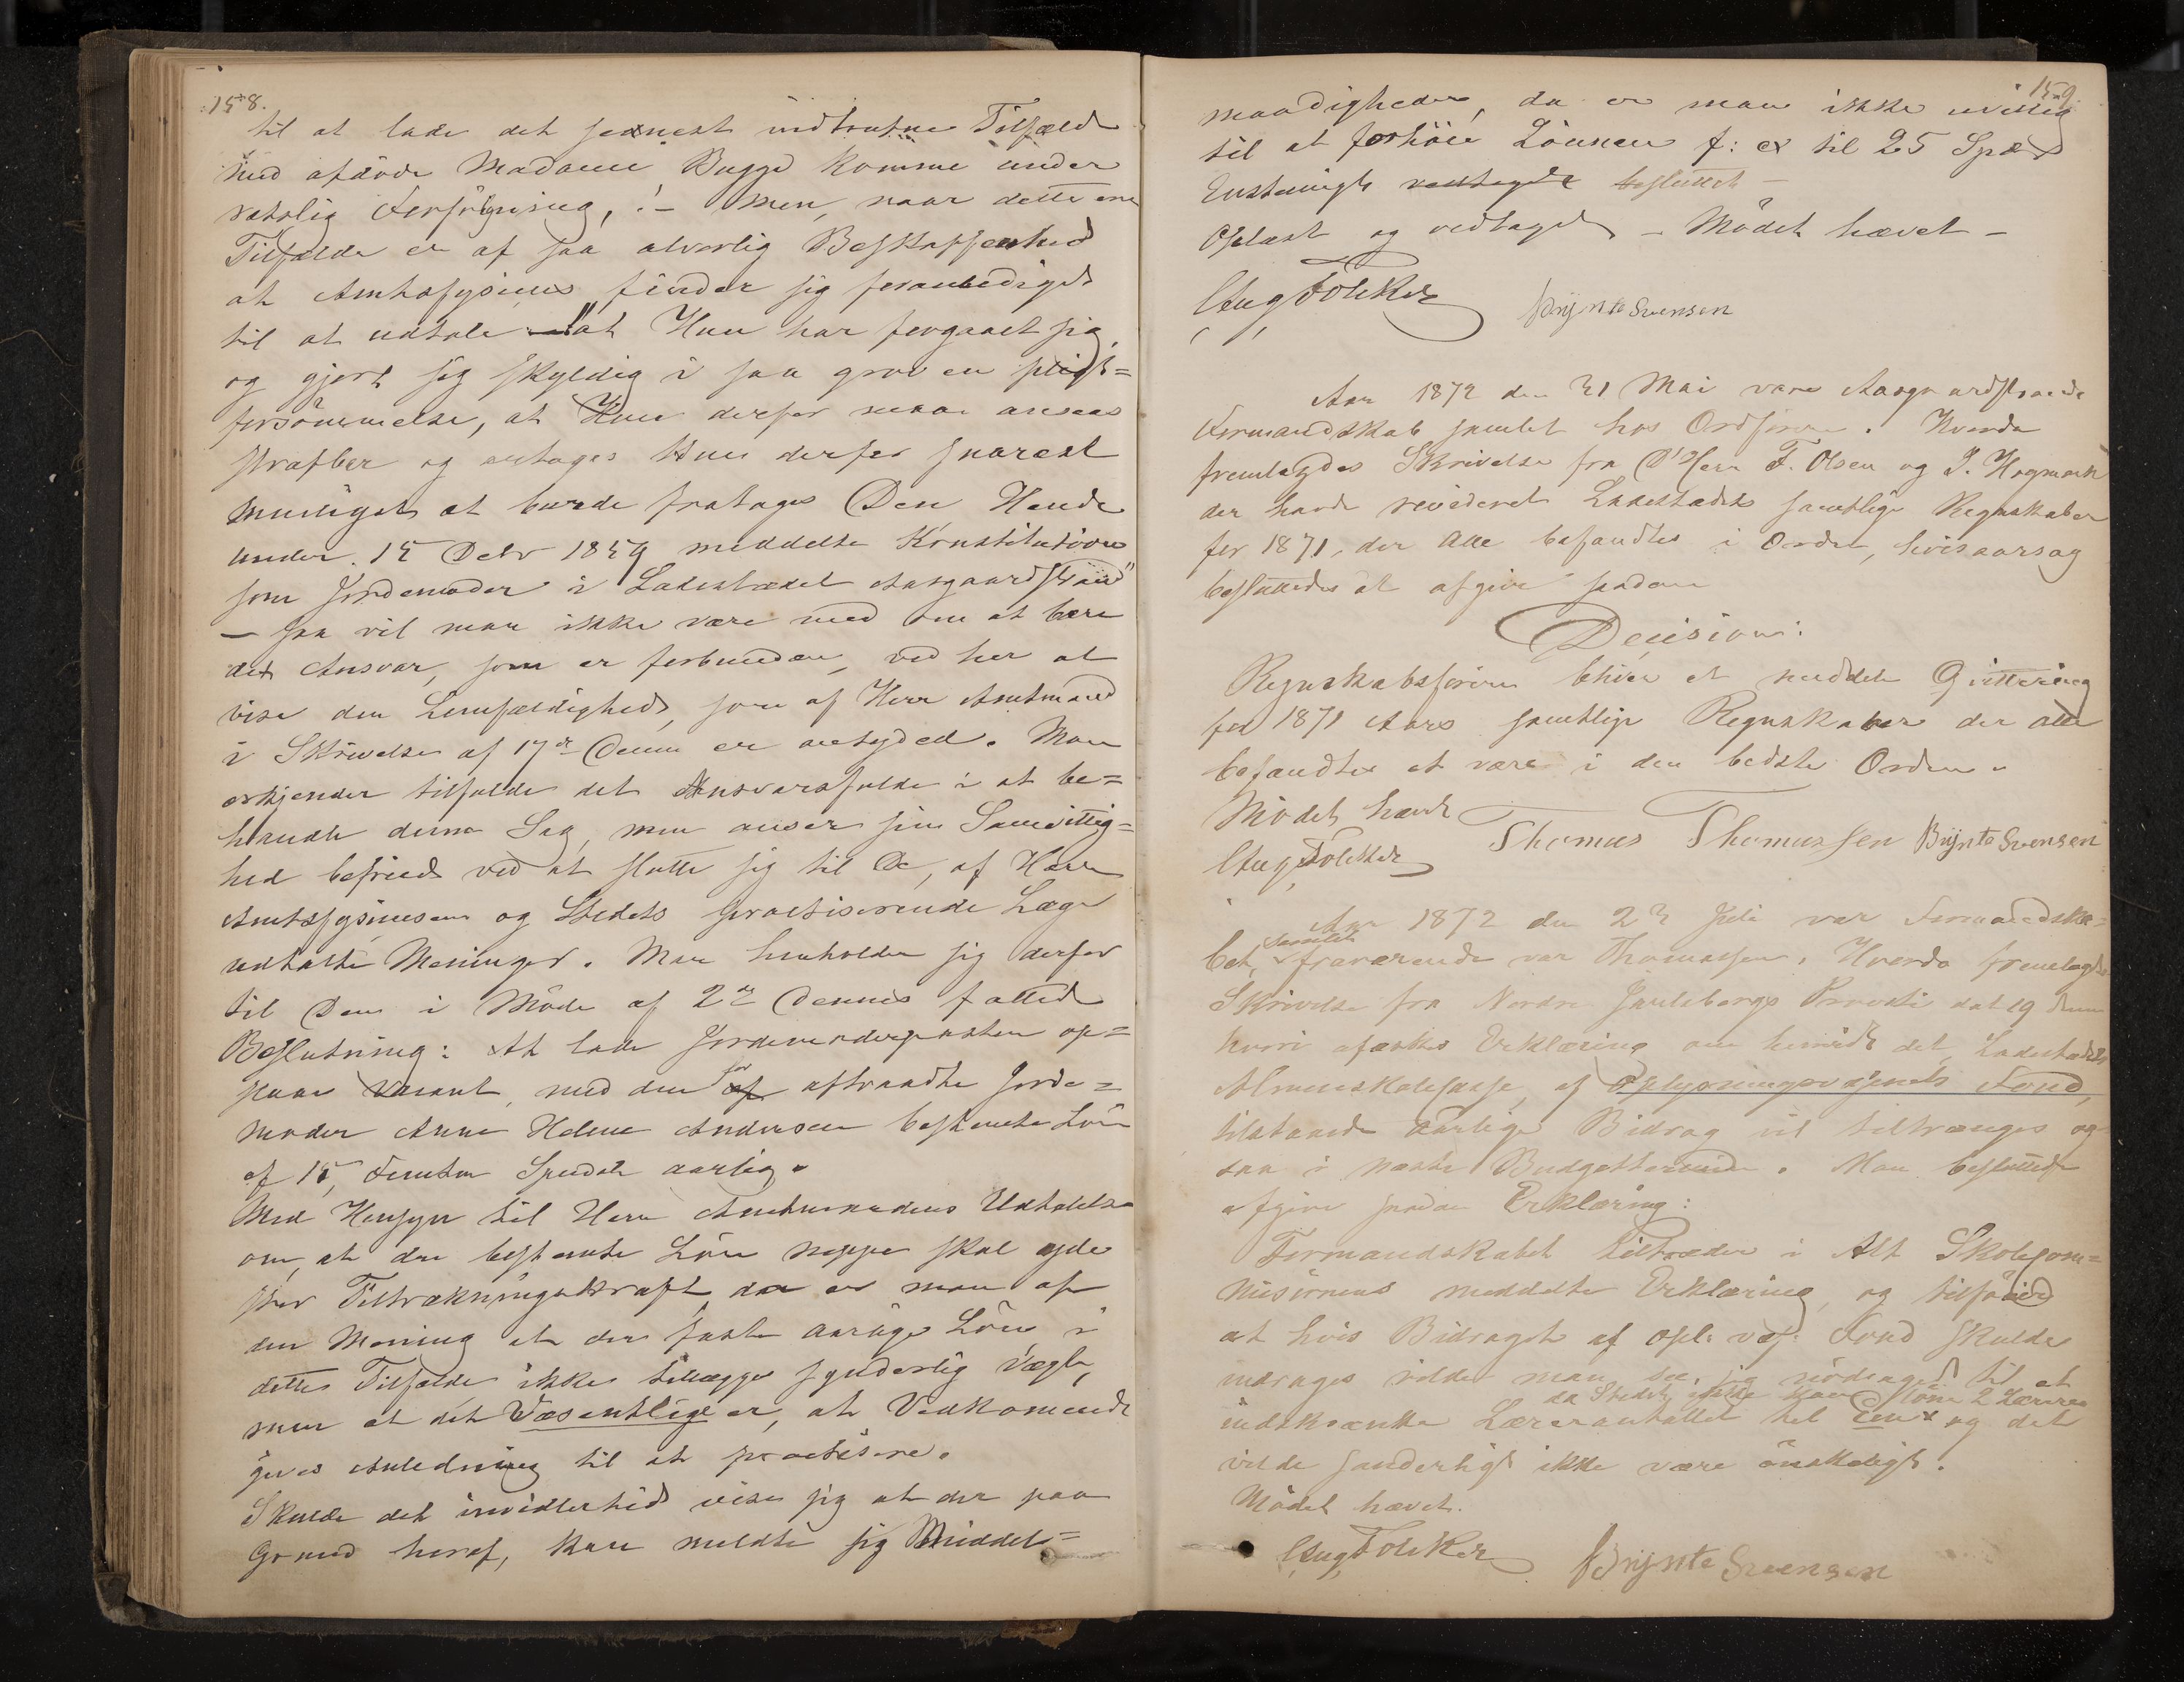 158.
til at lade det senest indtrufne Tilfælde
med afdøde Madame Bugge komme under
retslig Forfølgning, :- men, naar dette ene
Tilfælde er af saa alvorlig Beskaffenhed
at Amtsfysicus finder sig foranlediget
til at udtale "at Hun har forgaaet sig
og gjort sig skyldig i saa grov en pligt=
forsömmelse, at Hun derfor maa ansees
strafbar og antages Hun derfor snarest
muligst at burde fratages Den Hende
under 15 Debr 1859 meddelte Konstitution
som Jordemoder i Ladestædet Aasgaardstrand"
— saa vil man ikke være med om at bære
det Ansvar, som er forbunden, ved her at
vise den Lemfældighed, som af Herr Amtmand
i Skrivelse af 17de Dennes er antyded. Man
erkjender tilfulde det Ansvarsfulde i at be=
handle denne Sag, men anser sin Samvittig=
hed befried ved at slutte sig til De, af Herr
Amtsfysicusen og Stedets practiserende Læge
udtalte Meninger. Man henholder sig derfor
til Den i Møde af 2den Dennes fattede
Beslutning: At lade Jordemoderposten op=
slaaes vacant, med den for aftraadte Jorde=
moder Anne Helene Andersen bestemte Lön
af 15, Femten Specdlr aarlig.
Med Hensyn til Herr Amtmandens Udtalelse
om, at den bestemte Lön neppe skal øde
stor Tiltrækningskraft da er man af
den Mening at den faste aarlige Lön i
dette Tilfælde ikke tillægges synderlig Vægt,
men at det Væsentlige er, at Vedkommende
gives Anledning til at practisere.
Skulde det imidlertid vise sig at der paa
Grund heraf, kun meldte sig Middel=
159.
maadigheder, da er man ikke uvillig
til at forhöie Lönnen f: ex til 25 Spd
Enstemigt vedtaget besluttet —
Oplæst og vedtaget — Mödet hævet —
Aug Fölcker
Brynte Svensen
Aar 1872 den 31 Mai vare Aasgaardstrands
Formandskab samlet hos Ordføreren. Hvorda
fremlagdes Skrivelse fra D'Herr F. Olsen og J. Hagmark
der havde revideret Ladestædets samtlige Regnskaber
for 1871, der Alle befandtes i Orden, hvisaarsag
besluttedes at afgive saadan
Decision:
Regnskabsføreren bliver at meddele Qvittering
for 1871 Aars samtlige Regnskaber der alle
befandtes at være i den bedste Orden.
Mödet hævet
Aug Fölcker
Thomas Thomassen Brynte Svensen
Aar 1872 den 23 Juli var Formandska=
bet, samlet fraværende var Thomassen. Hvorda fremlagdes
Skrivelse fra Nordre Jarlsbergs Provsti dat 19 dennes
hvori afæskes Erklæring om hvorvidt det Ladestædets
Almueskolekasse, af Oplysningsvæsenets Fond,
tilstaaede aarlige Bidrag vil tiltrænges og
saa i næste Budgettermin. Man besluttede
afgive saadan Erklæring:
Formandskabet tiltræder i Alt Skolecom=
missionens meddelte Erklæring, og tilföier
at hvis Bidraget af Opl: væs: Fond skulde
inddrages vilde man see sig nödsaget til at
da Stedet ikke kan lönne 2 Lærere
indskrænke Lærerantallet til een og det
vilde sandeligt ikke være ønskeligt.
Mödet hævet.
Aug Fölcker
Brynte Svensen